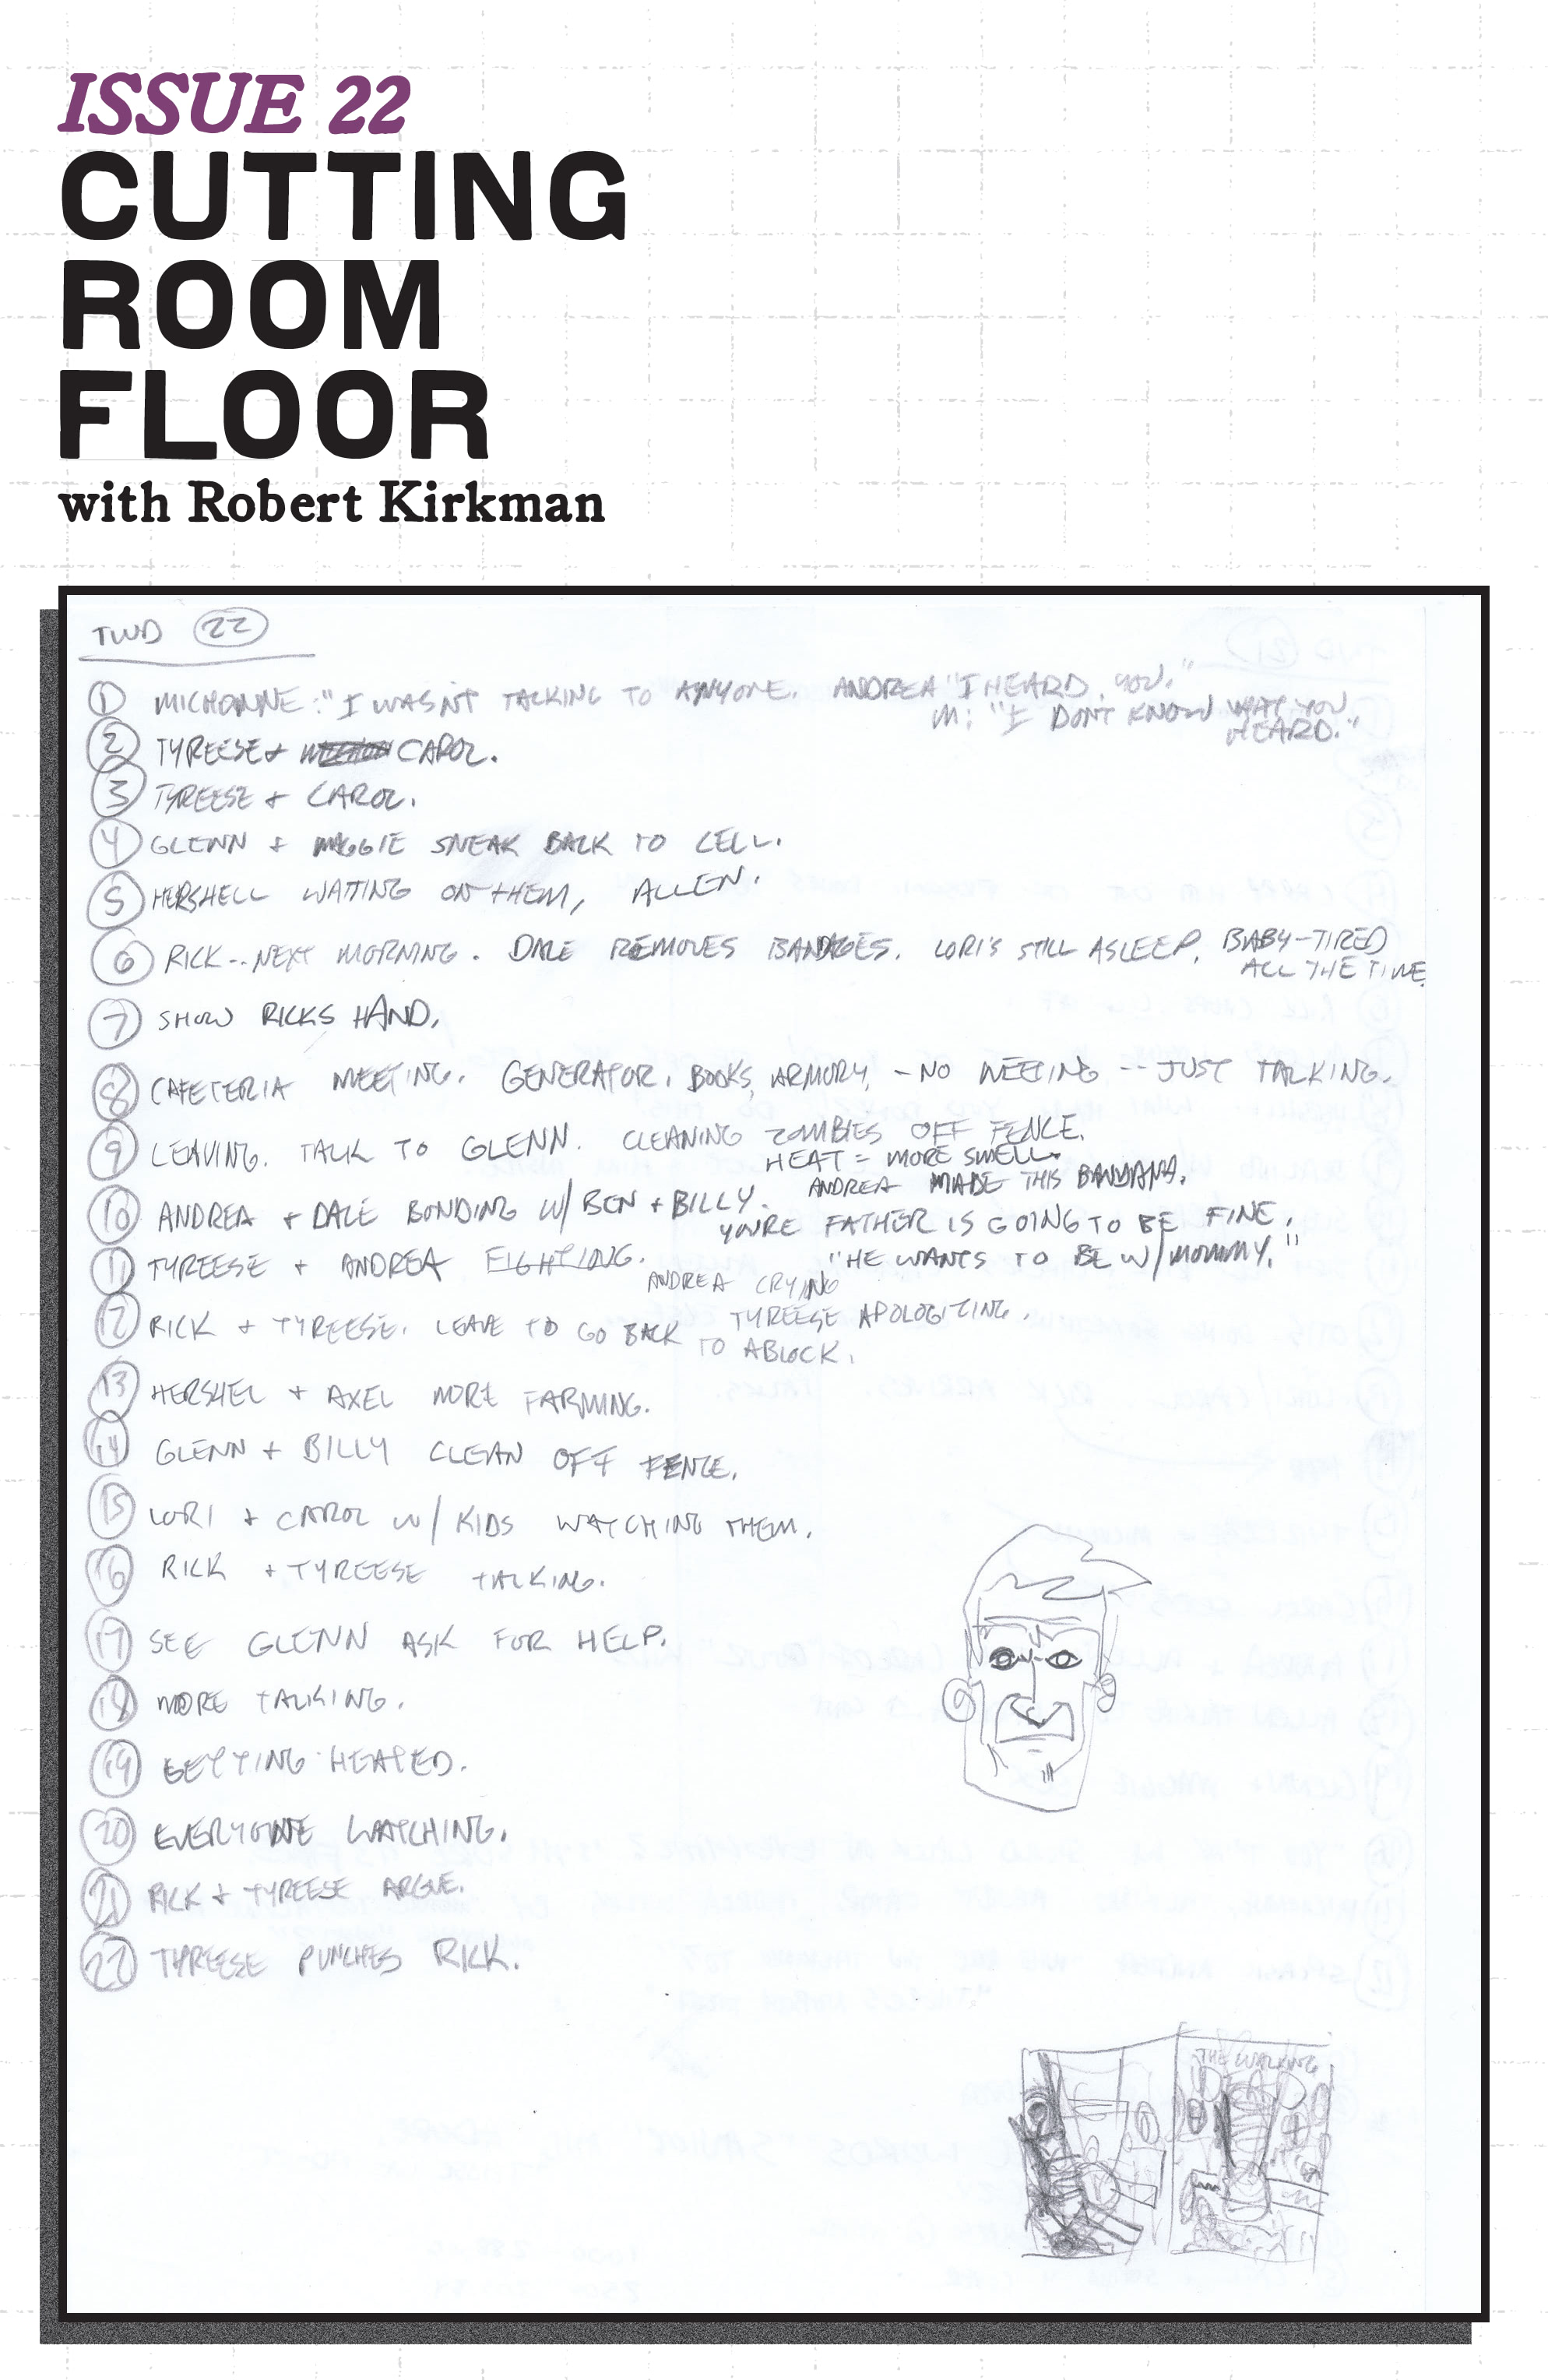 ISSUE 22
CUTTING
ROOM
FLOOR
with Robert Kirkman
TWD 22
1 MICHONNE: "I WASN'T TALKING TO ANYONE. ANDREA "I HEARD YOU."
M: "I DON'T KNOW WHAT YOU
HEARD."
2 TYREESE + CAROL.
3 TYREESE + CAROL.
4 GLENN + MAGGIE SNEAK BACK TO CELL.
5 HERSHELL WAITING ON THEM, ALLEN.
6 RICK-- NEXT MORNING. DALE REMOVES BANDAGES. LORI'S STILL ASLEEP, BABY-TIRED
ALL THE TIME.
7 SHOW RICKS HAND.
8 CAFETERIA MEETING. GENERATOR, BOOKS, ARMORY, - NO MEETING -- JUST TALKING.
9 LEAVING. TALK TO GLENN. CLEANING ZOMBIES OFF FENCE.
HEAT = MORE SMELL.
ANDREA MADE THIS BANDANA.
10 ANDREA + DALE BONDING W/ BEN + BILLY.
YOU'RE FATHER IS GOING TO BE FINE.
"HE WANTS TO BE W/ MOMMY."
11 TYREESE + ANDREA FIGHTING.
ANDREA CRYING
TYREESE APOLOGIZING.
12 RICK + TYREESE. LEAVE TO GO BACK TO A BLOCK.
13 HERSHEL + AXEL MORE FARMING.
14 GLENN + BILLY CLEAN OFF FENCE.
15 LORI + CAROL W/ KIDS WATCHING THEM.
16 RICK + TYREESE TALKING.
17 SEE GLENN ASK FOR HELP.
18 MORE TALKING.
19 GETTING HEATED.
20 EVERYONE WATCHING.
21 RICK + TYREESE ARGUE.
22 TYREESE PUNCHES RICK.
THE WALKING